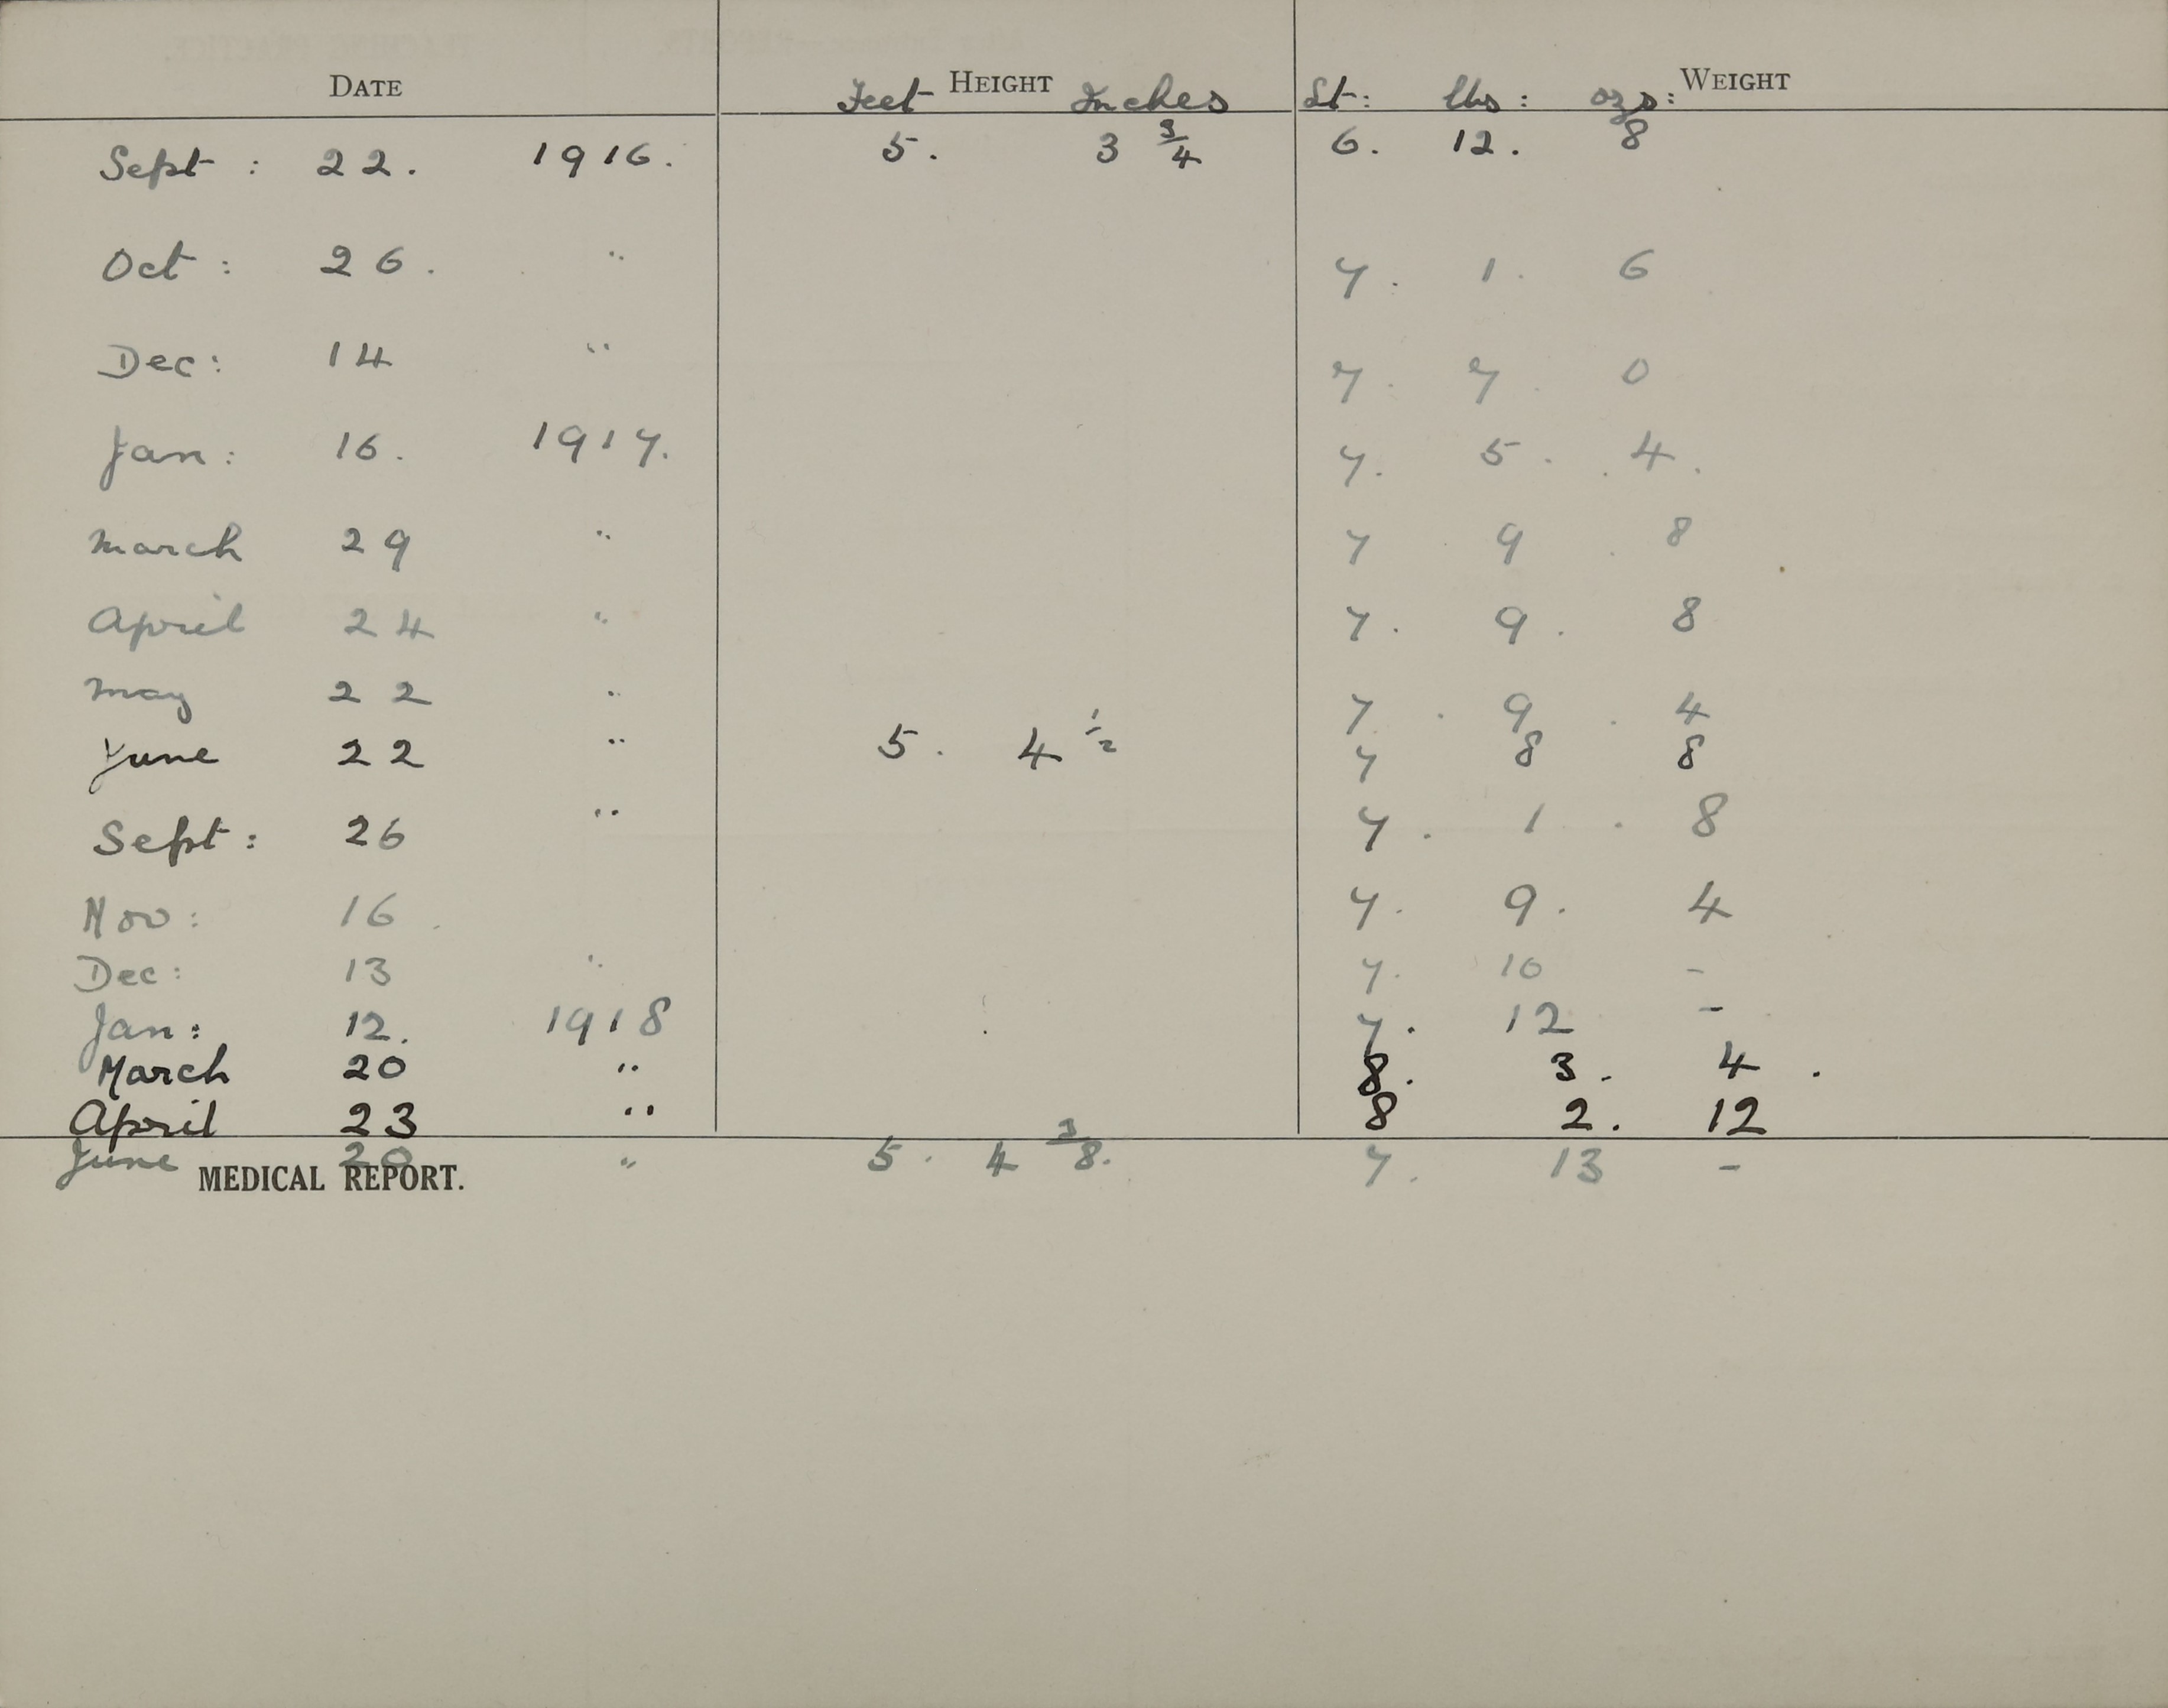 DATE HEIGHT WEIGHT
Feet Inches St: lbs: ozs:
Sept: 22. 1916. 5. 3 3/4 6. 12. 8
Oct: 26. " 7. 1. 6
Dec: 14 " 7. 7. 0
Jan: 16. 1917. 7. 5. 4.
March 29 " 7 9 8
April 24 " 7. 9. 8
May 22 " 7. 9. 4
June 22 " 5. 4 1/2 7 8 8
Sept: 26 " 7. 1. 8
Nov: 16. 7. 9. 4
Dec: 13 " 7. 10 -
Jan: 12. 1918 7. 12 -
March 20 " 8. 3. 4.
April 23 " 8 2. 12
June 20 " 5. 4 3/8. 7. 13 -
MEDICAL REPORT.